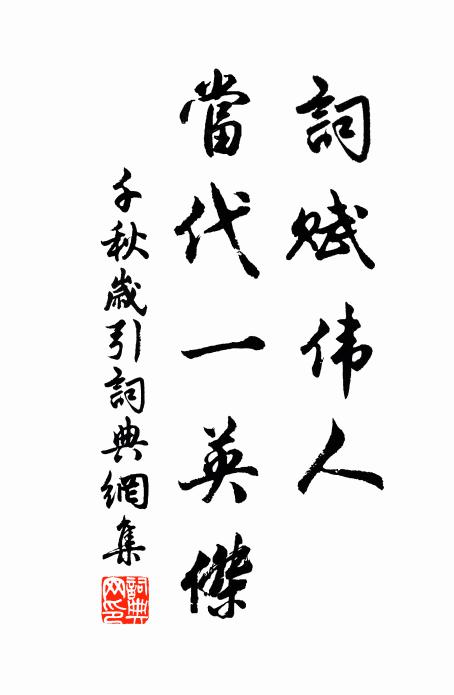 詞赋伟人
當代一英傑
千秋歲引詞典網集
詞典网印